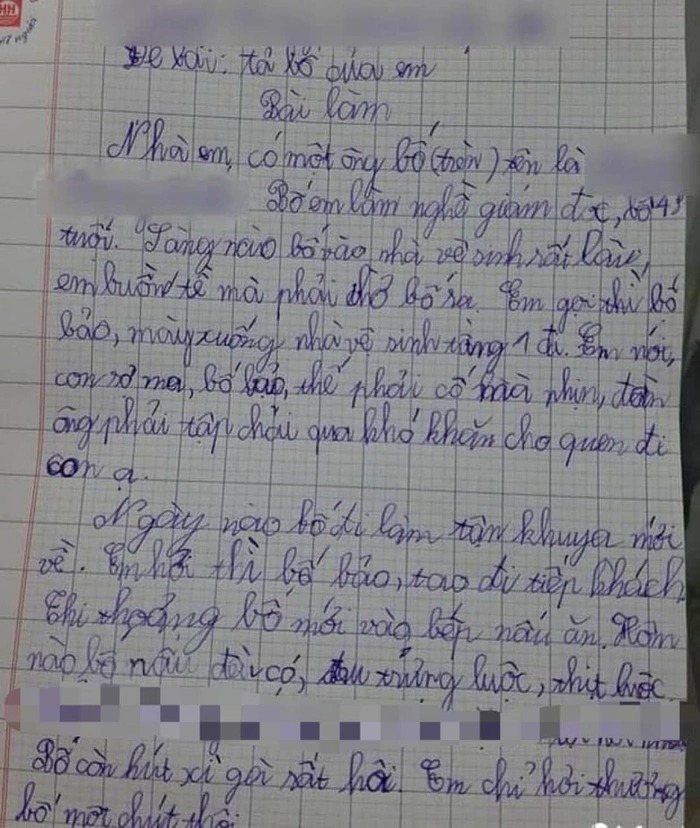 HH
Đề bài: tả bố của em
Bài làm
Nhà em, có một ông bố (trộn) tên là
Bố em làm nghề giám đốc, bố 43
tuổi. Sáng nào bố vào nhà vệ sinh rất lâu,
em buồn tè mà phải chờ bố ra. Em gọi thì bố
bảo, mày xuống nhà vệ sinh tầng 1 đi. Em nói,
con sợ ma, bố bảo, thế phải cố mà nhịn, đàn
ông phải tập chải qua khó khăn cho quen đi
con ạ.
Ngày nào bố đi làm tận khuya mới
về. Em hỏi thì bố bảo, tao đi tiếp khách.
Thi thoảng bố mới vào bếp nấu ăn. Hôm
nào bố nấu đều có, trứng luộc, thịt luộc.
Bố còn hút xì gòi rất hôi. Em chỉ hơi thương
bố một chút thôi